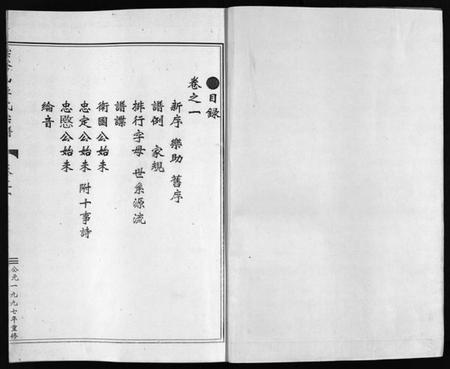 目錄
卷之一
新序 樂助 舊序
譜例 家規
排行字母 世系源流
譜諜
衛國公始末
忠定公始末 附十事詩
忠愍公始末
綸音
公元一九九七年重修